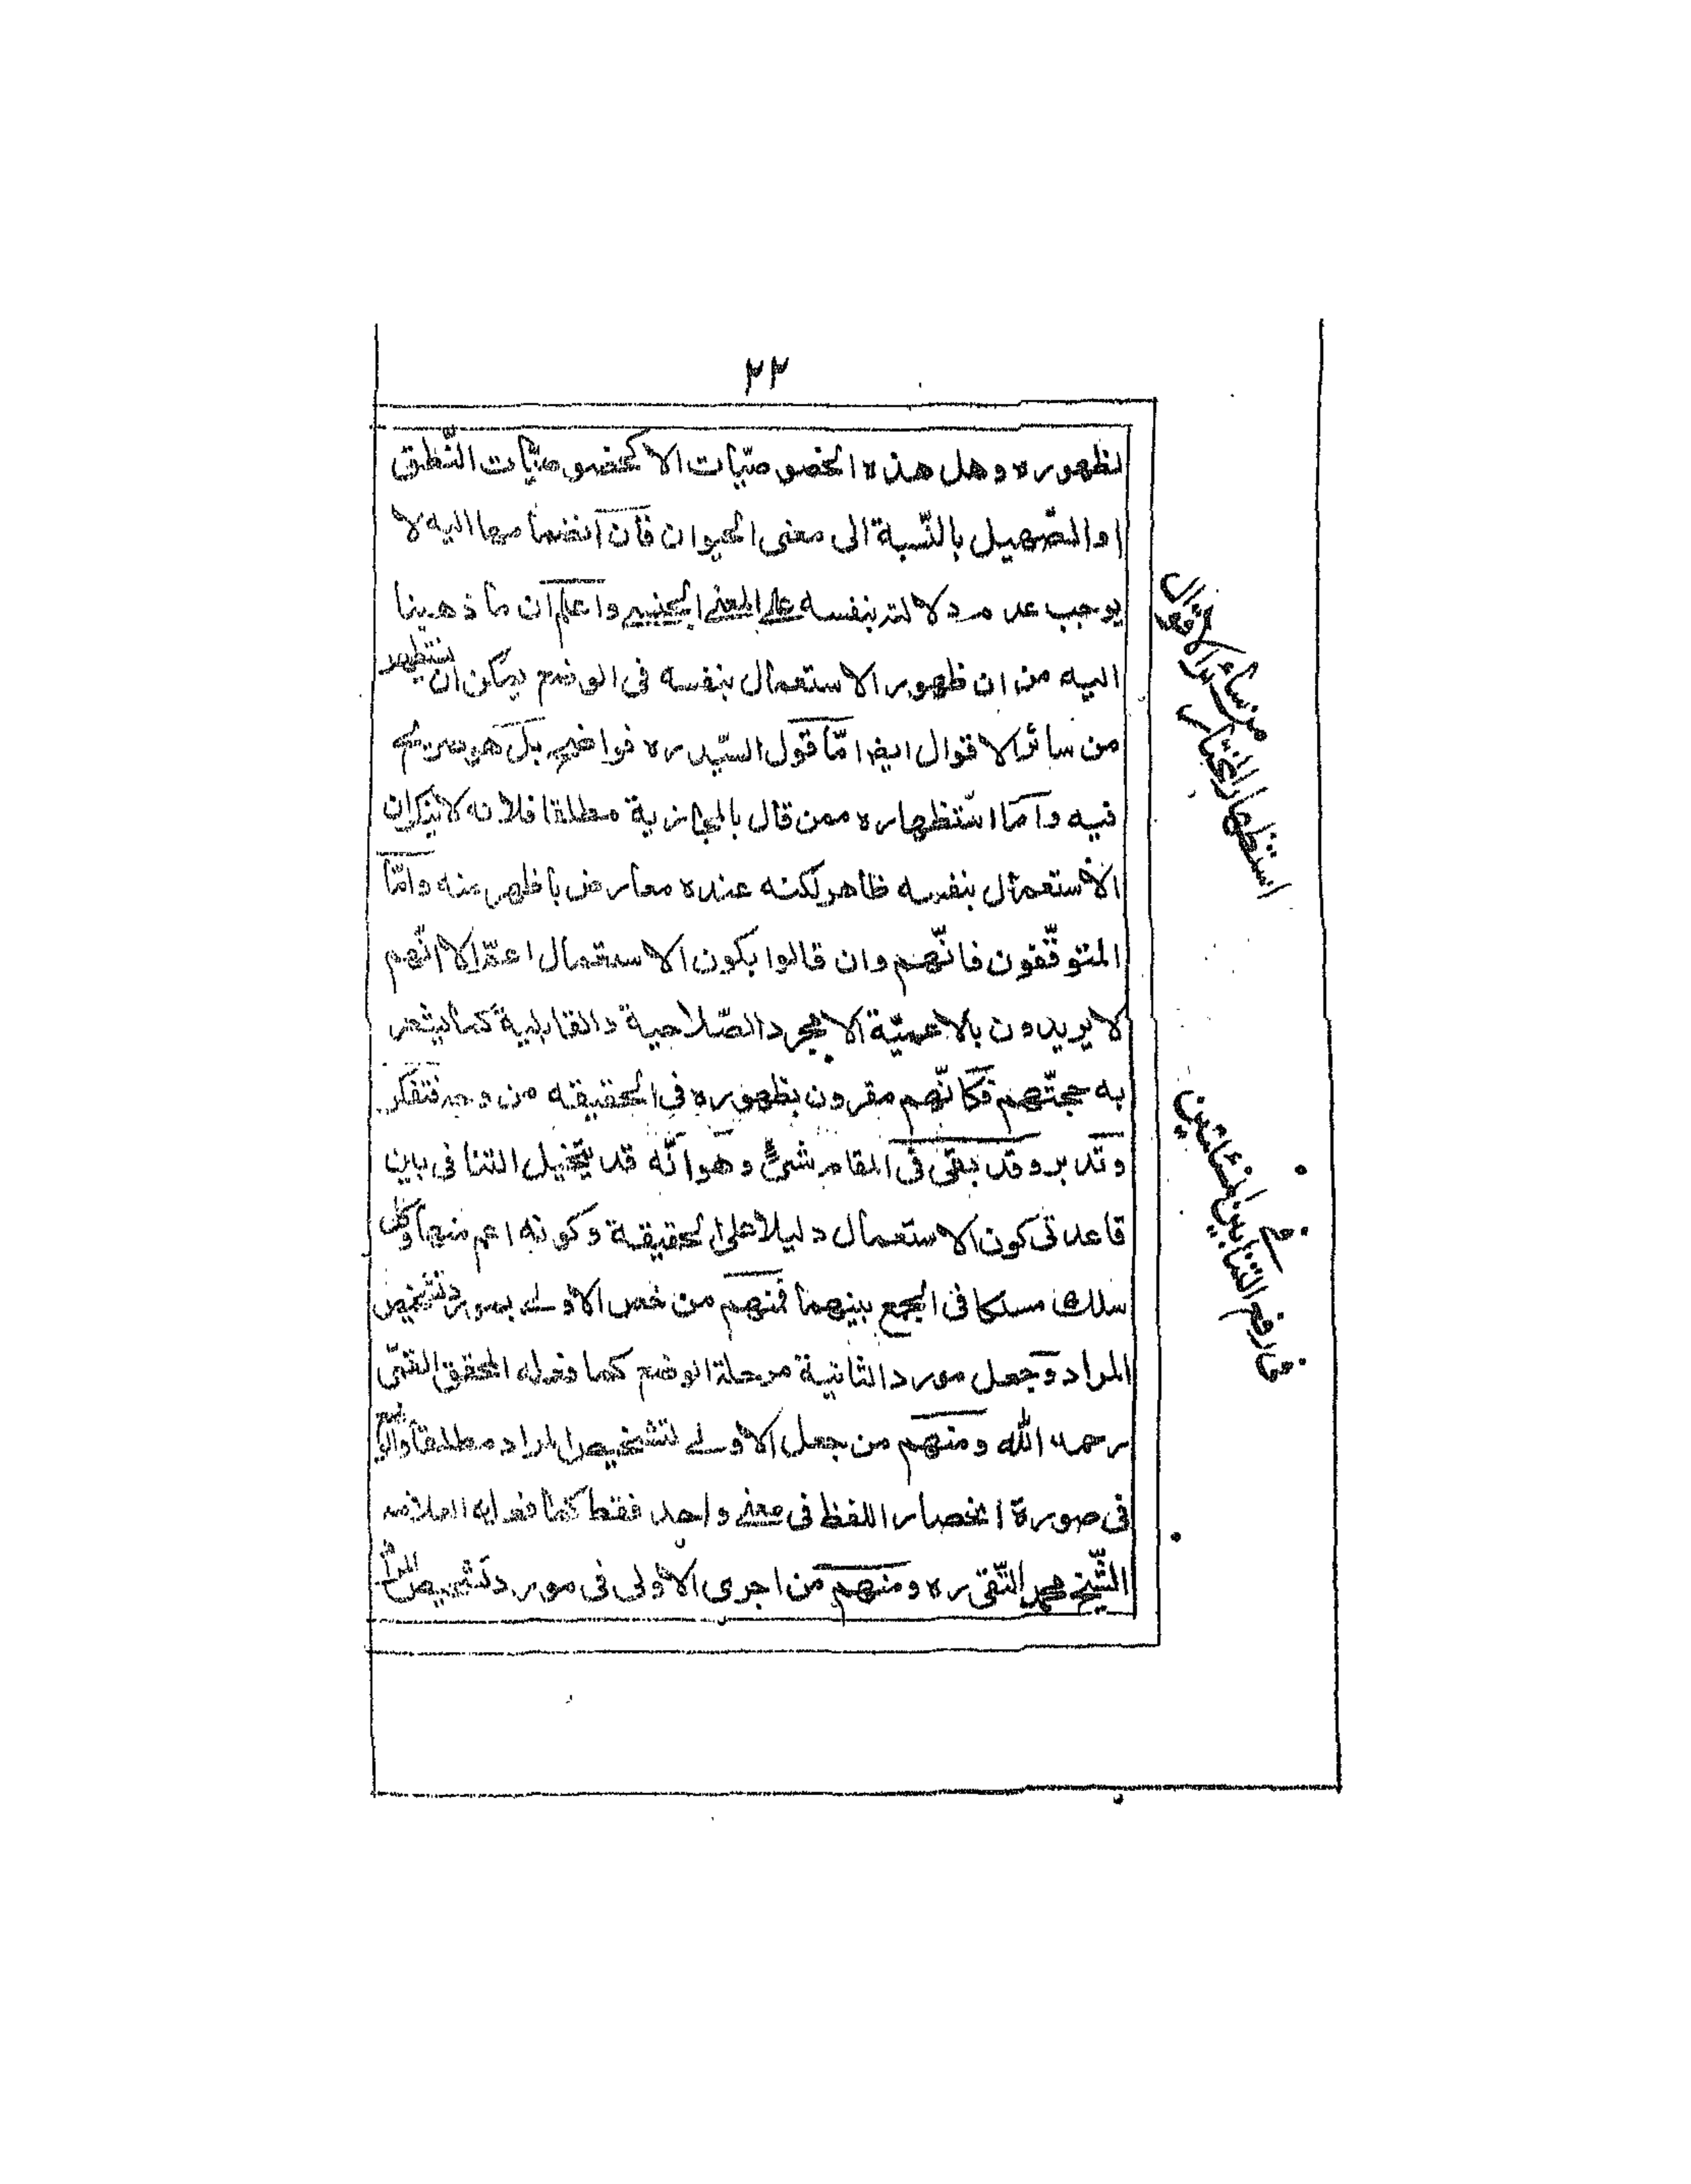 ٢٢
لظهوره وهل هذه الخصوصيّات الا كخصوصيّات النّطق
او الصّهيل بالنّسبة الى معنى الحيوان فان انضمامها اليه لا
يوجب عدم دلالته بنفسه على المعنى الجنسى واعلم ان ما ذهبنا
اليه من ان ظهور الاستعمال بنفسه فى الوضع يمكن ان يستظهر
من سائر الاقوال ايضا امّا قول السّيد ره فواضح بل هو صريح
فيه وامّا استظهاره ممن قال بالمجازية مطلقا فلانه لا ينكر ان
الاستعمال بنفسه ظاهر لكنه عنده معارض باظهر منه وامّا
المتوقّفون فانّهم وان قالوا بكون الاستعمال اعمّ الا انّهم
لا يريدون بالاعميّة الا مجرد الصّلاحية والقابلية كما يشعر
به حجتّهم فكانّهم مقرون بظهوره فى الحقيقه من وجه فتفكر
وتدبر وقد بقى فى المقام شئ وهو انّه قد يتخيل التنافى بين
قاعدتى كون الاستعمال دليلا على الحقيقة وكونه اعم منها وكل
سلك مسلكا فى الجمع بينهما فمنهم من خص الاولى بمورد تشخيص
المراد وجعل مورد الثانية مرحلة الوضع كما فعله المحقق القمّى
رحمه الله ومنهم من جعل الاولى لتشخيص المراد مطلقا والوضع
فى صورة انحصار اللفظ فى معنى واحد فقط كما فعله العلامه
الشّيخ محمد التّقى ره ومنهم من اجرى الاولى فى مورد تشخيص المراد
استظهار المختار
من سائر الاقوال
فى رفع التنافى بين